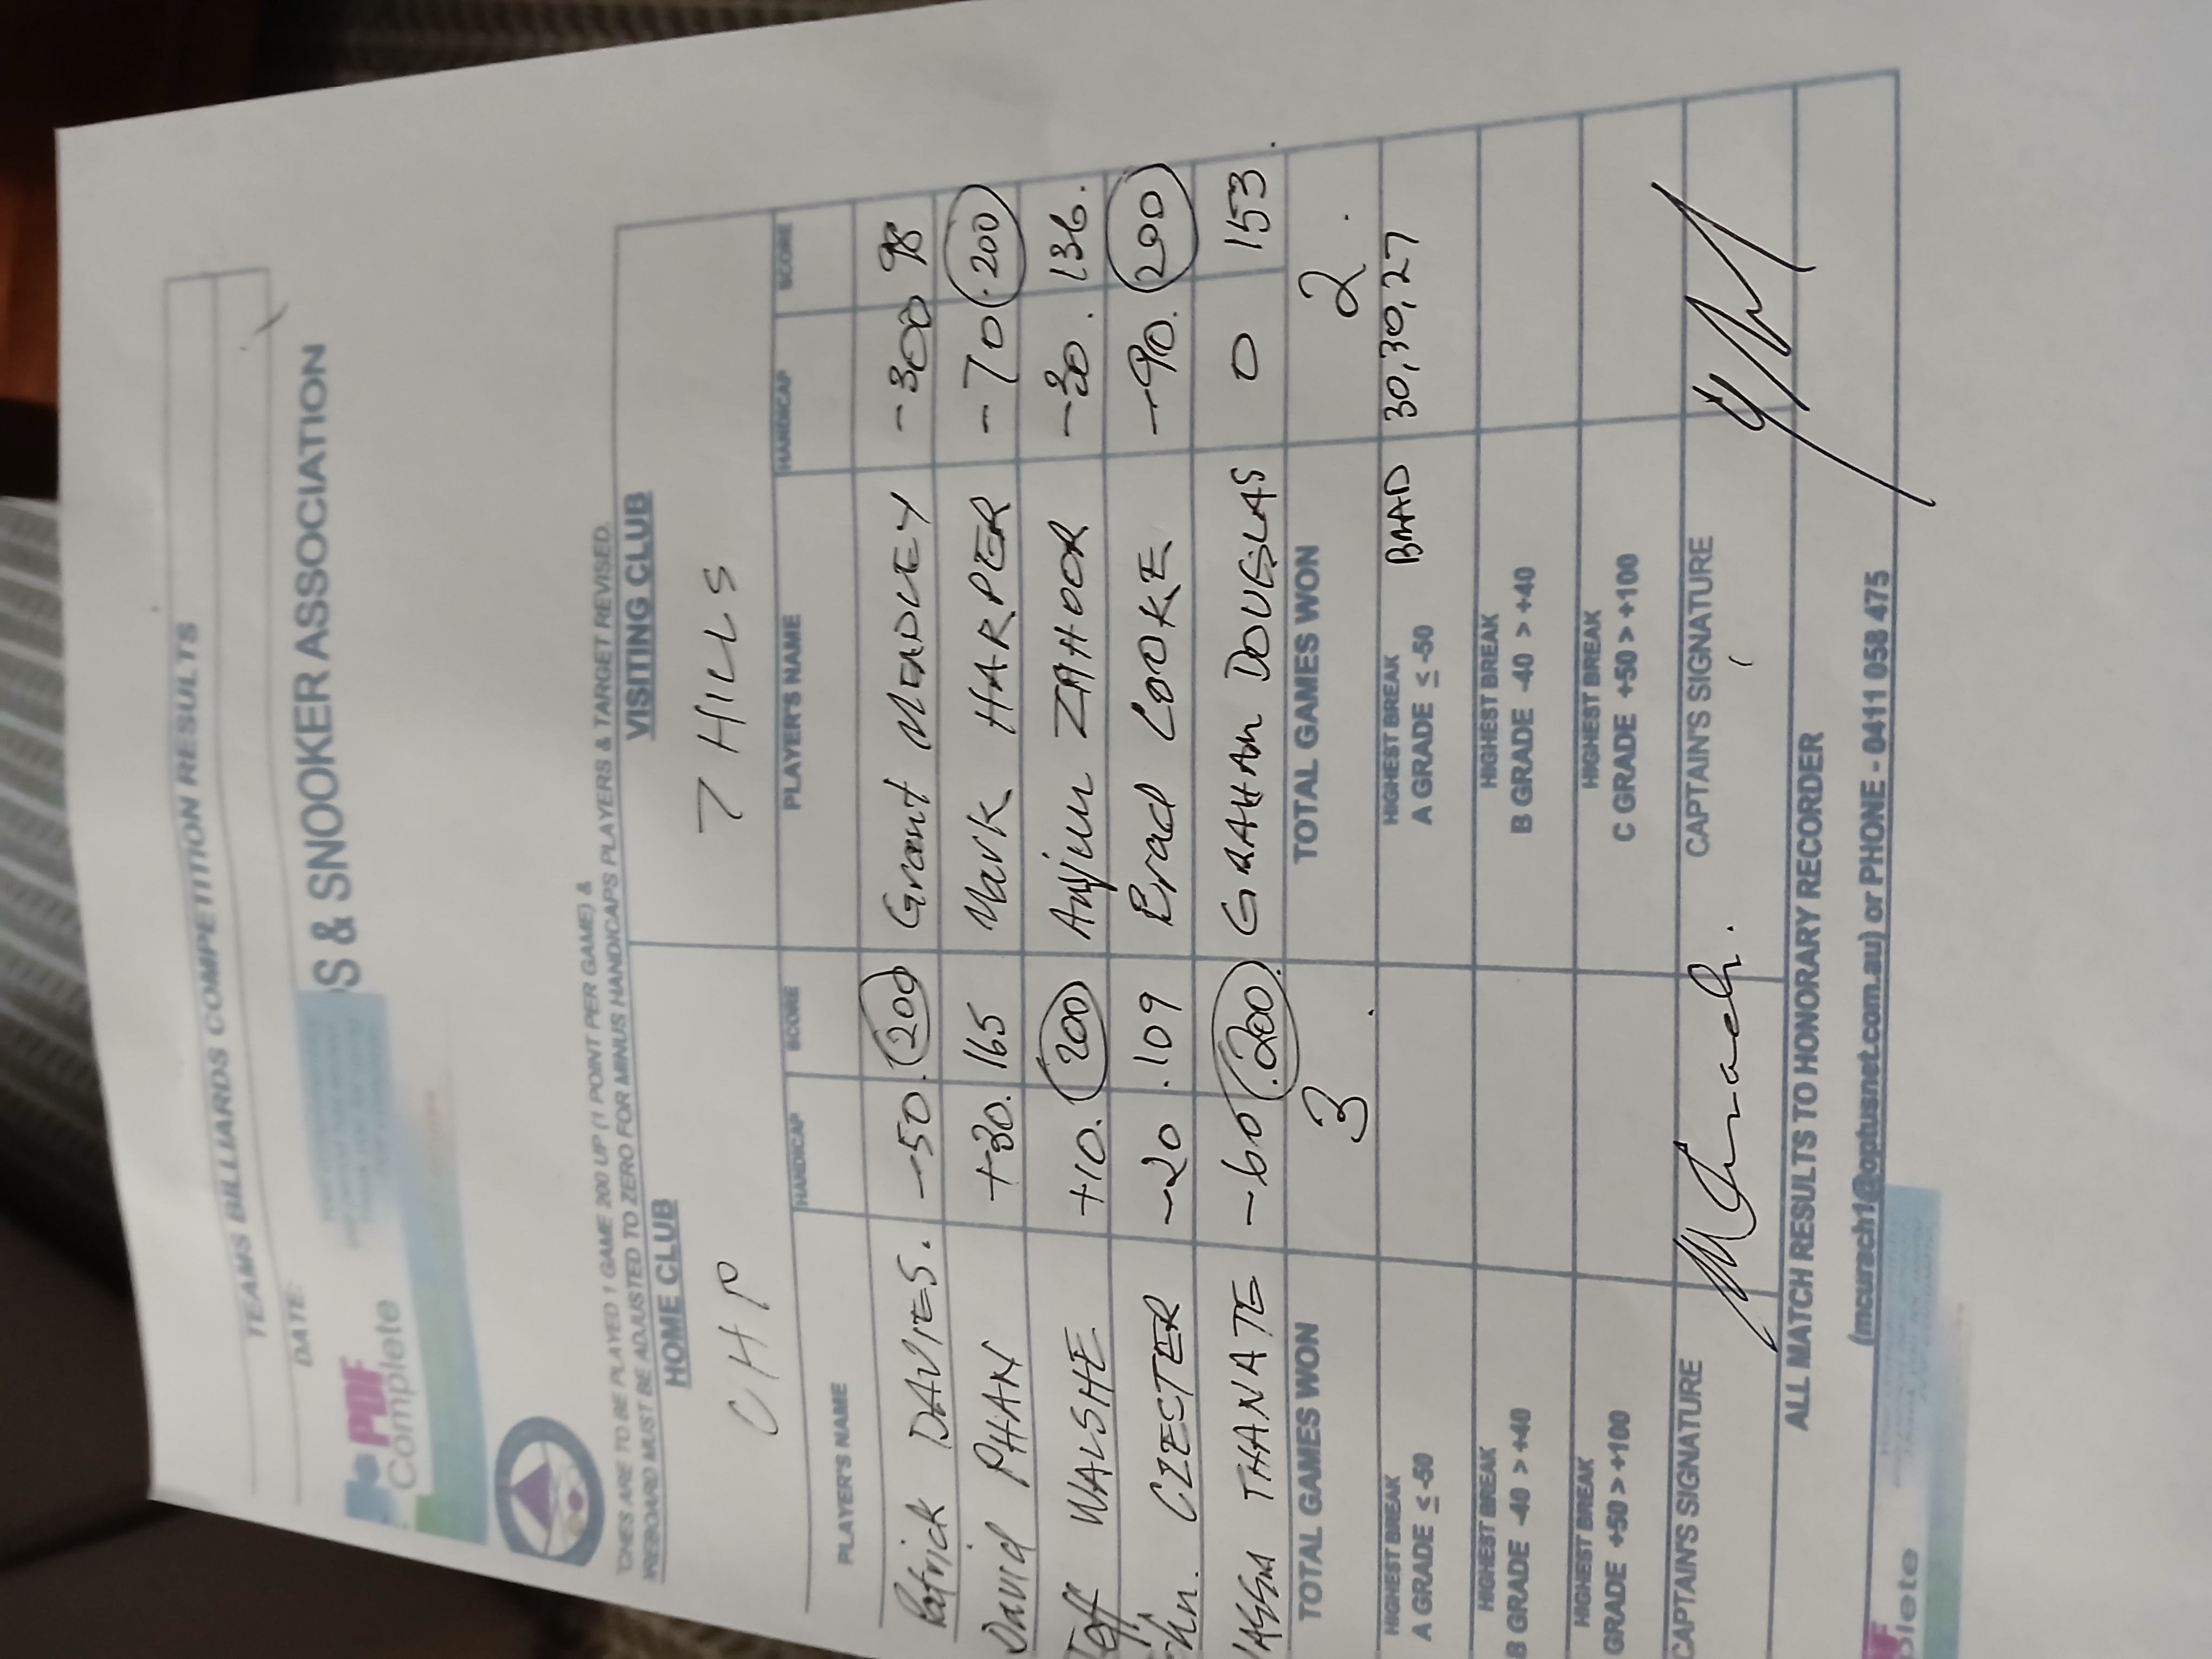 TEAMS BILLIARDS COMPETITION RESULTS
DATE:
PDF
Complete
S & SNOOKER ASSOCIATION
CHES ARE TO BE PLAYED 1 GAME 200 UP (1 POINT PER GAME) &
REBOARD MUST BE ADJUSTED TO ZERO FOR MINUS HANDICAPS PLAYERS & TARGET REVISED.
HOME CLUB VISITING CLUB
CHP 7 HILLS
PLAYER'S NAME HANDICAP SCORE PLAYER'S NAME HANDICAP SCORE
Patrick DAVIES. -50. 200 Grant MEDLEY -300 98
David PHAN +30. 165 Mark HARPER -70 .200
Jeff WALSHE +10. 200 Anjum ZAHOOR 136.
hn. CZESTER -20 .109 Brad COOKE -90. 200
THANATE -60 .200. GRAHAM DOUGLAS 0 153.
TOTAL GAMES WON 3 TOTAL GAMES WON 2.
HIGHEST BREAK
A GRADE ≤ -50
HIGHEST BREAK
A GRADE ≤ -50 BRAD 30,30,27
HIGHEST BREAK
B GRADE -40 > +40
HIGHEST BREAK
B GRADE -40 > +40
HIGHEST BREAK
GRADE +50 > +100
HIGHEST BREAK
C GRADE +50 > +100
CAPTAIN'S SIGNATURE CAPTAIN'S SIGNATURE
ALL MATCH RESULTS TO HONORARY RECORDER
(mcurach1@optusnet.com.au) or PHONE - 0411 058 475
plete